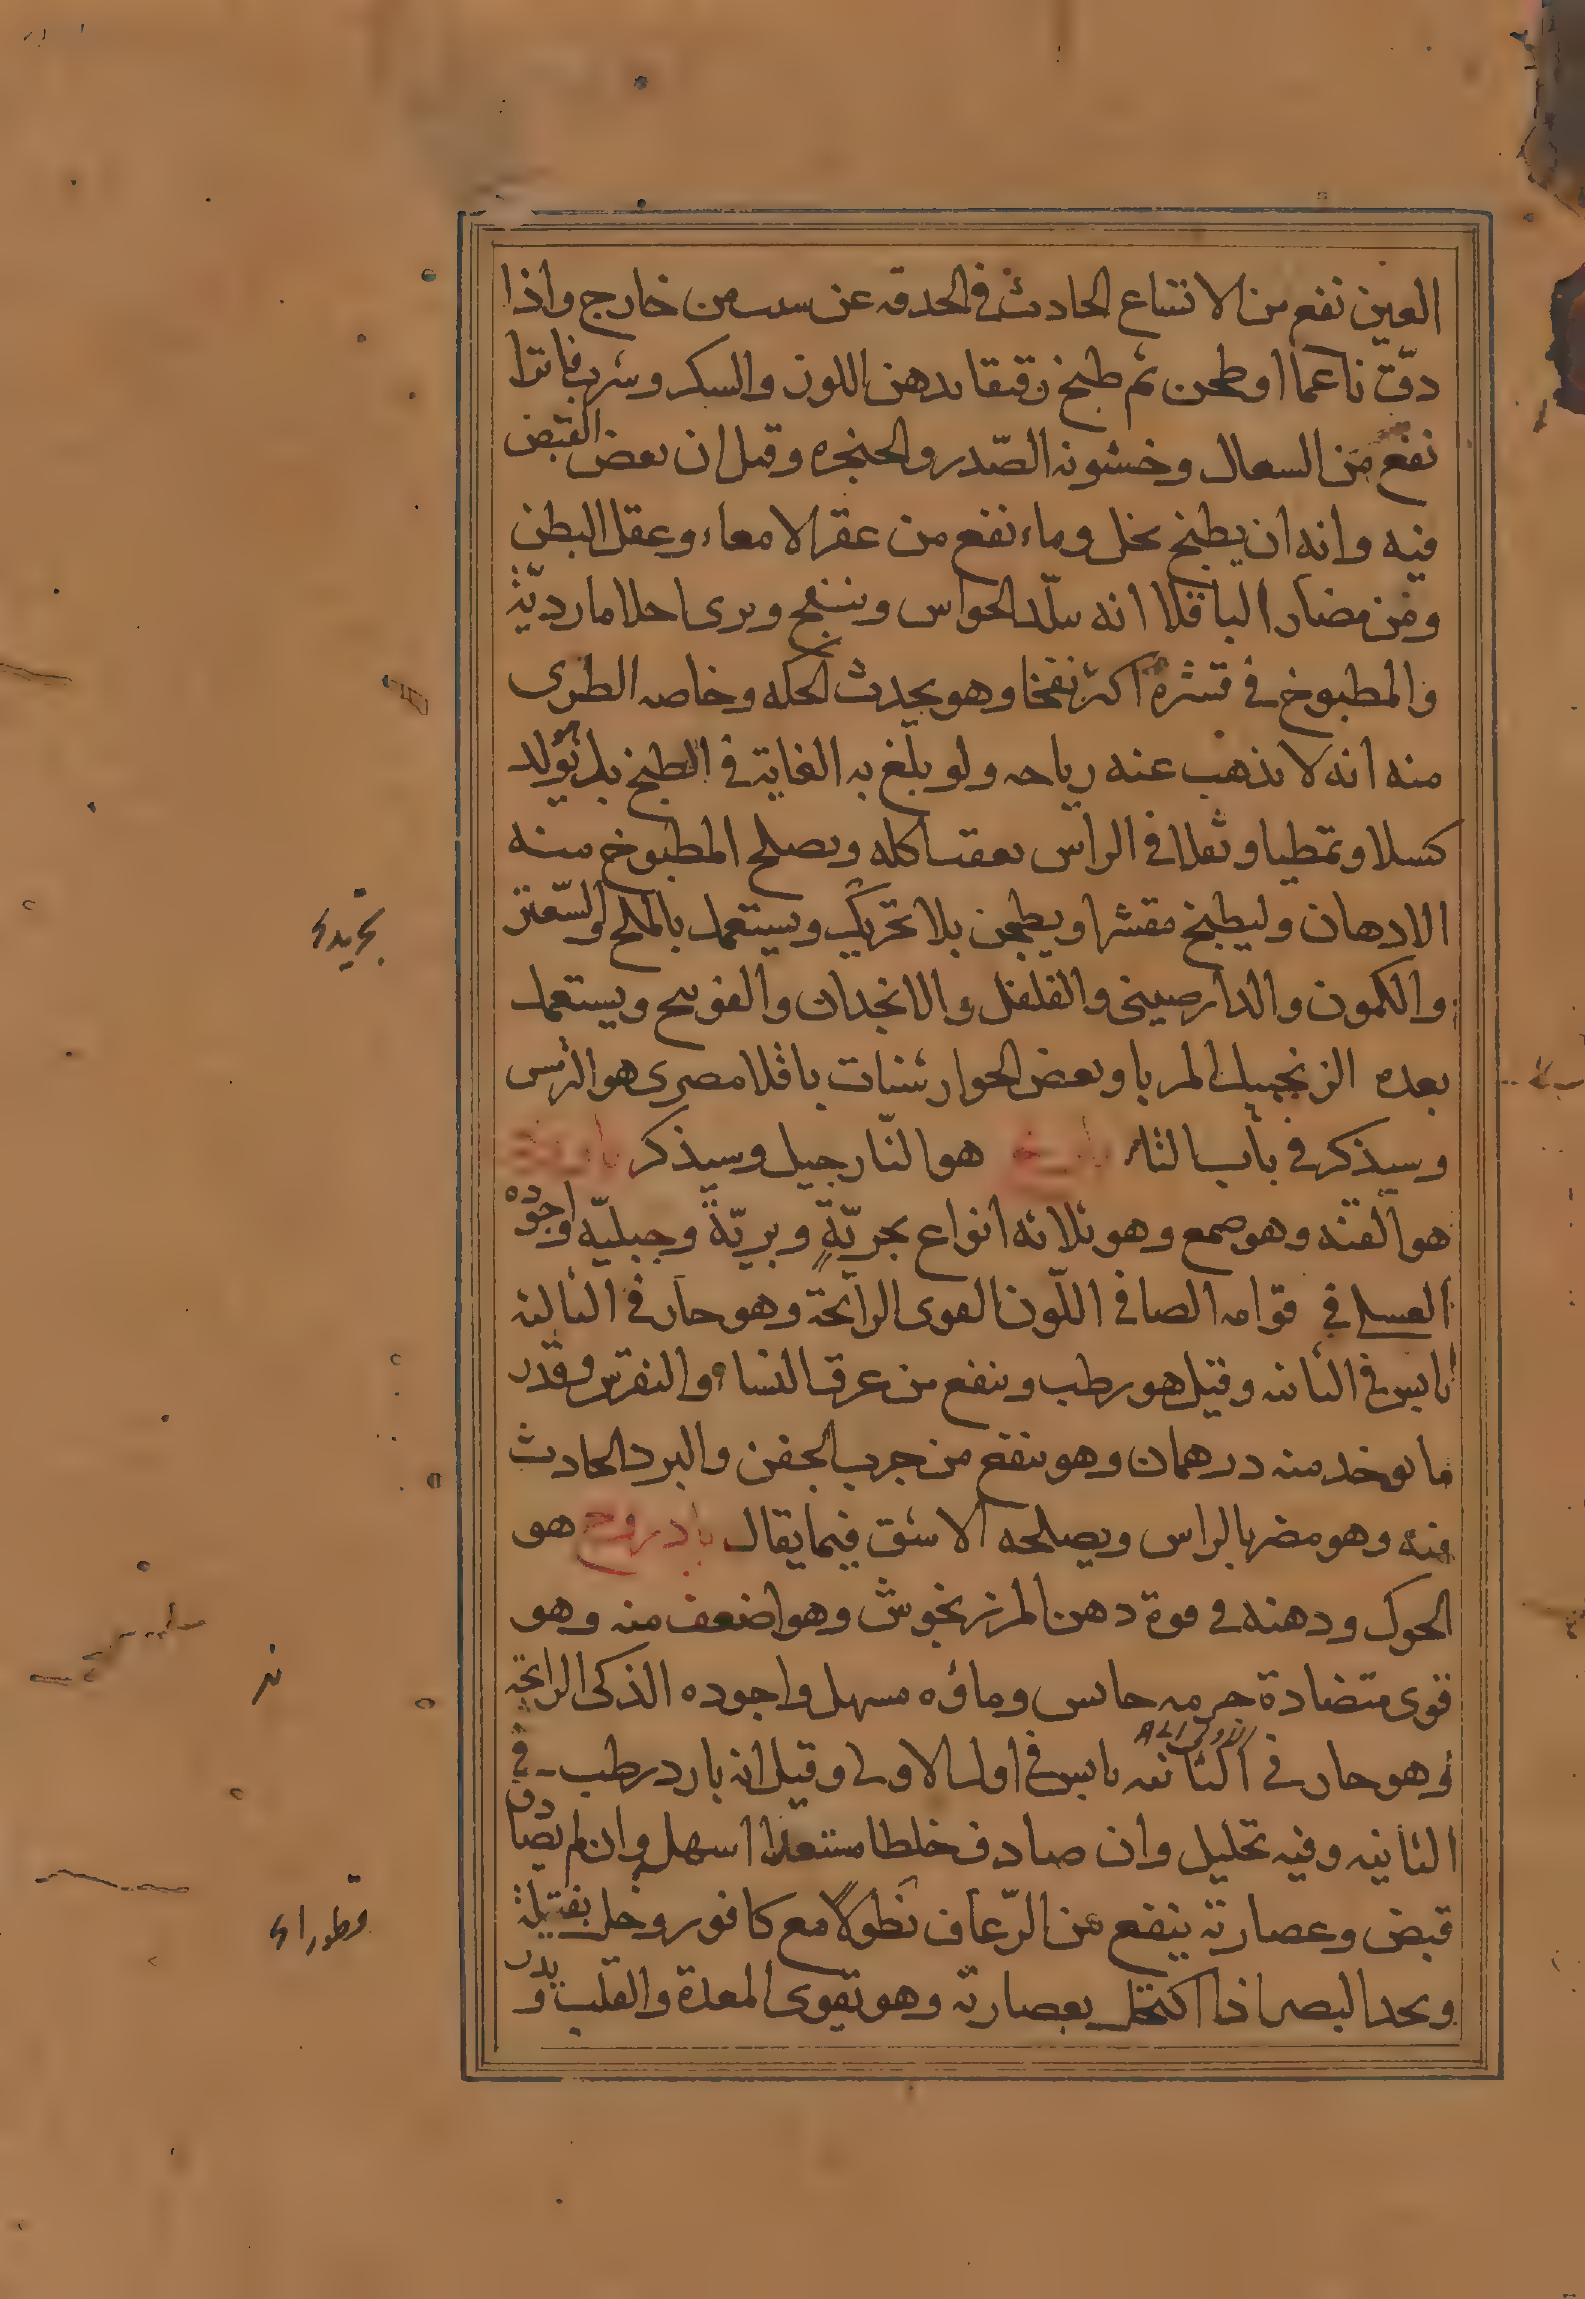 العين نفع من الاتساع الحادث في الحدقه عن سبب من خارج واذا
دقّ ناعما او طحن ثم طبخ رقيقا بدهن اللوز والسكر وشرب فاترا
نفع من السعال وخشونه الصّدر والحنجره وقيل ان بعض القبض
فيه وانه ان يطبخ بخل وماء نفع من عقر الامعاء وعقل البطن
ومن مضار الباقلا انه يبلّد الحواس وينفخ ويرى احلاما رديّة
والمطبوخ في قشره اكثر نفخا وهو يحدث الحكه وخاصه الطرى
منه انه لا يذهب عنه رياحه ولو بلغ به الغاية في الطبخ بل هو يولد
كسلا وتمطيا وثقلا في الراس بعقب اكله ويصلح المطبوخ منه
الادهان وليطبخ مقشرا ويطجن بلا تحريك ويستعمل بالملح والسّعتر
والكمون والدارصينى والفلفل والانجدان والفوتنج ويستعمل
بعده الزنجبيل المربا وبعض الجوارشنات باقلا مصرى هو الترمس
وسيذكر في باب التاء هو النّارجيل وسيذكر
هو القنه وهو صمع وهو ثلاثه انواع بحريّةٍ وبريّة وجبليّه اجوده
العسلى في قوامه الصافى اللّون القوى الرائحة وهو حار في الثالثه
يابس في الثانيه وقيل هو رطب وينفع من عرق النساء والنقرس وقدر
ما يوخد منه درهمان وهو ينفع من جرب الجفن والبرد الحادث
فيه وهو مضر بالراس ويصلحه الاشق فيما يقال بادروج هو
الحوك ودهنه في قوة دهن المرزنجوش وهو اضعف منه وهو
قوى متضادة جرمه حابس وماؤه مسهل واجوده الذكى الرائحة
وهو حار في الثانيه يابس في اول الاولى وقيل انه بارد رطب في
الثانيه وفيه تحليل وان صادف خلطا مستعدا اسهل وان لم يصادف
قبض وعصارته ينفع من الرّعاف نطولًا مع كافور وخل بفتيلة
ويحد البصر اذا اكتحل بعصارته وهو يقوى المعدة والقلب ويدر